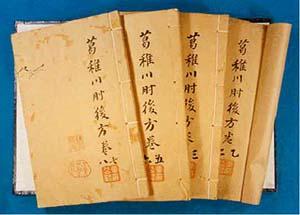 葛稚川肘後方卷乙二
葛稚川肘後方卷三
葛稚川肘後方卷五六
葛稚川肘後方卷七八